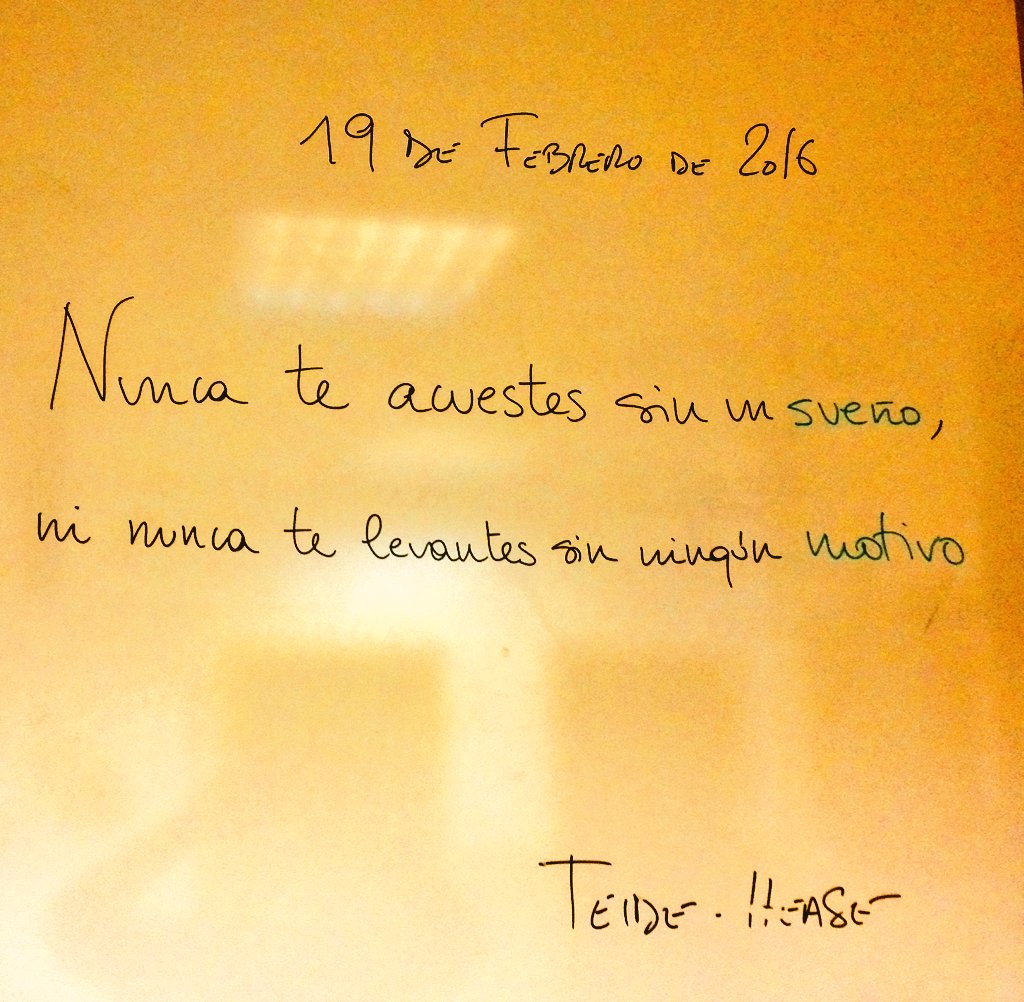 19 DE FEBRERO DE 2016
Nunca te acuestes sin un sueño,
ni nunca te levantes sin ningún motivo
TEIDE - HEASE